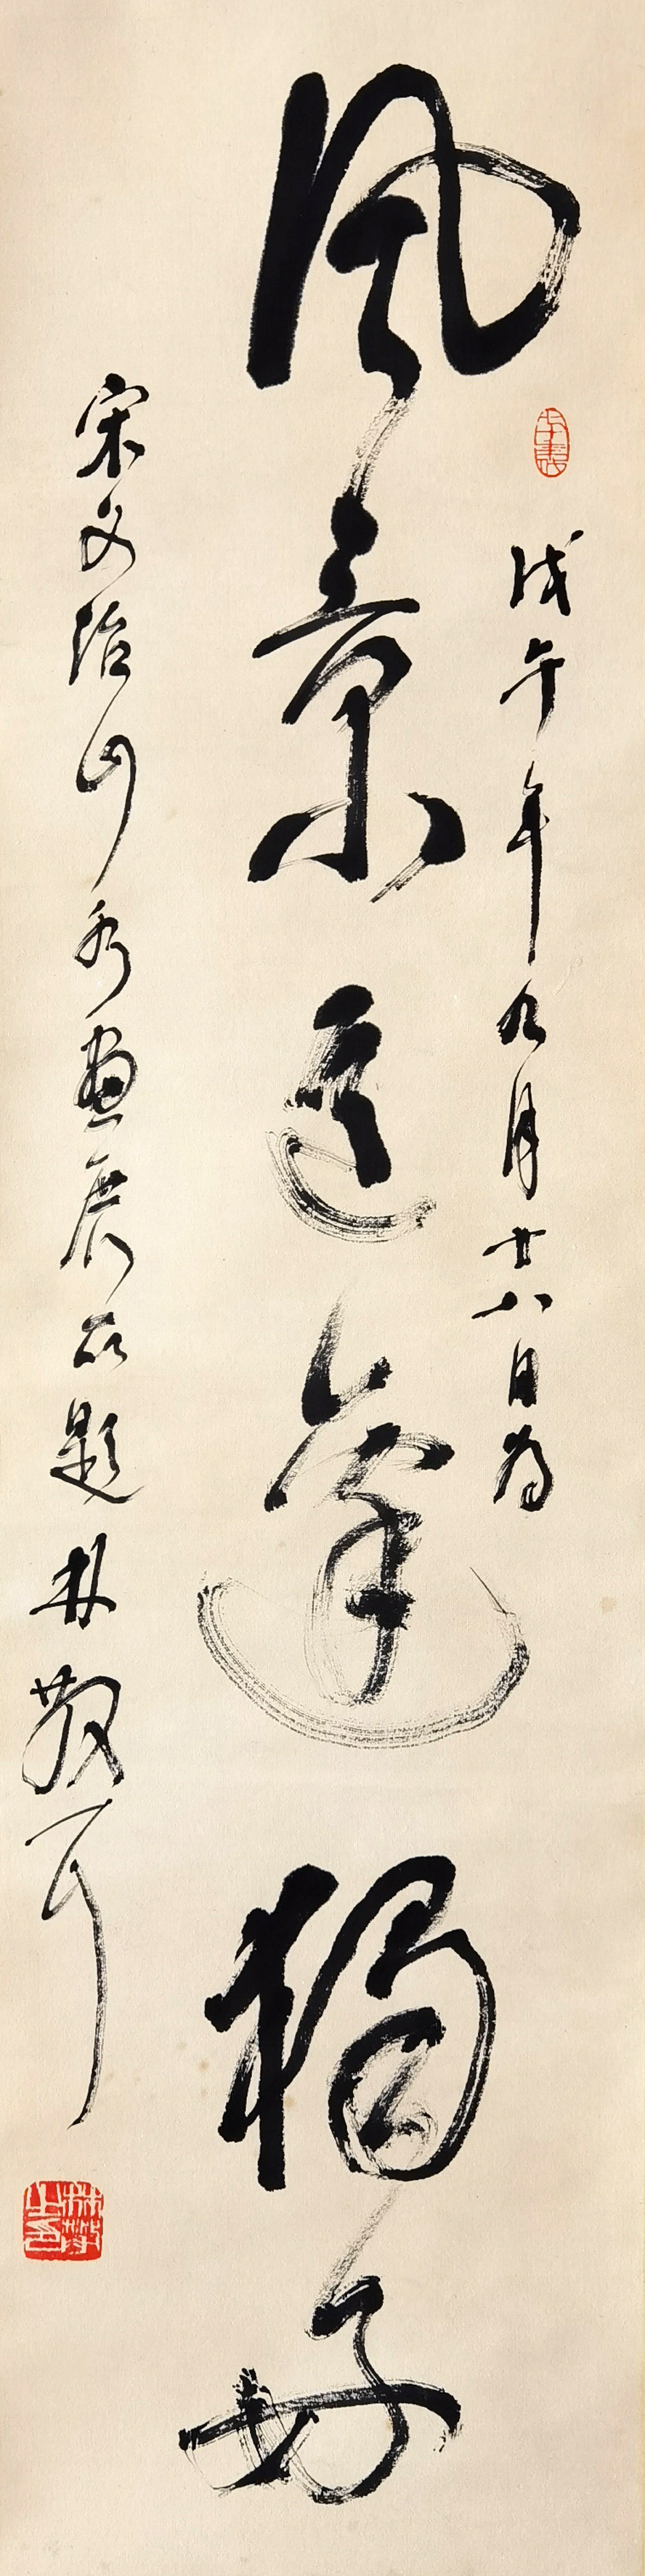 風景這邊獨好
戊午年九月廿八日為
宋文治山水畫展所題 林散耳
林散之印